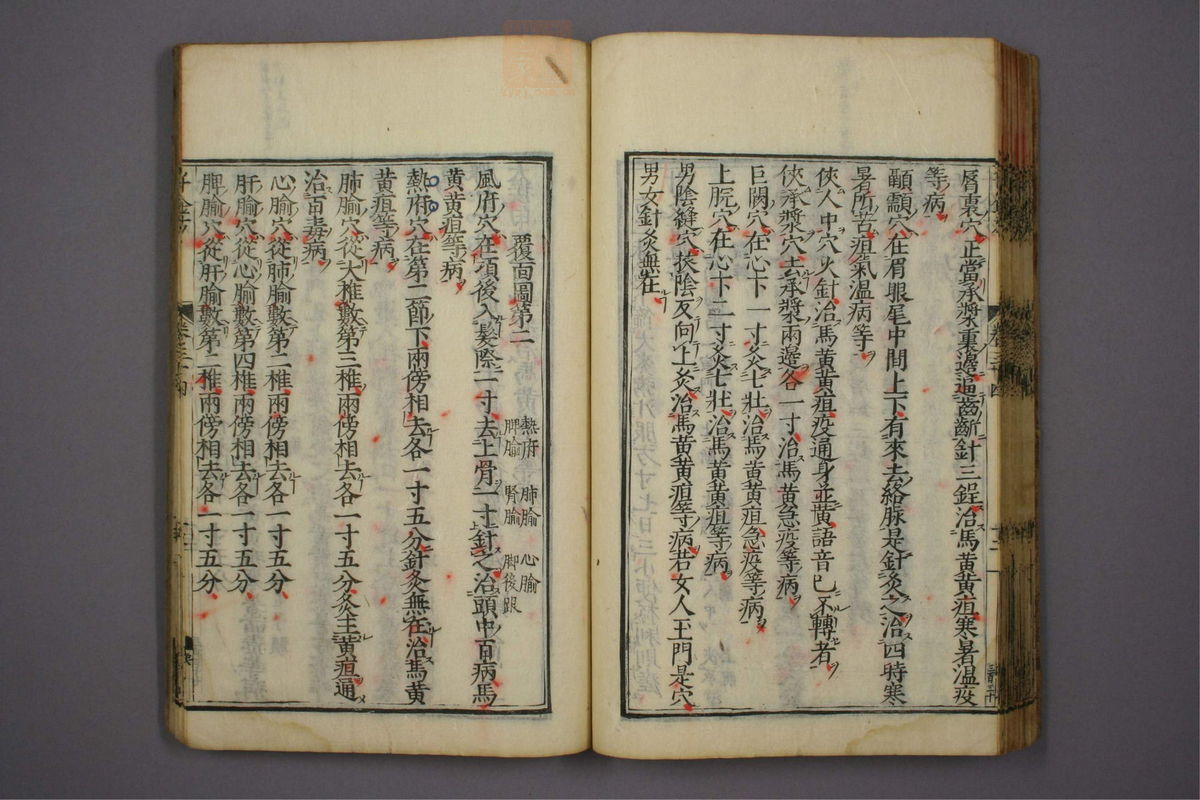 脣裏穴正當承漿邊逼齒齗針三鋥治馬黃黃疸寒暑溫疫
等病
顳顬穴在眉眼尾中間上下有來去絡脉是針灸之治四時寒
暑所苦疸氣溫病等
俠人中穴火針治馬黃黃疸疫通身並黃語音已不轉者
俠承漿穴去承漿兩邊各一寸治馬黃急疫等病
巨闕穴在心下一寸灸七壯治馬黃黃疸急疫等病
上脘穴在心下二寸灸七壯治馬黃黃疸等病
男陰縫穴拔陰反向上灸治馬黃黃疸等病若女人玉門是穴
男女針灸無在
覆面圖第二
熱府 肺腧 心腧
脾腧 腎腧 脚後跟
風府穴在項後入髮際一寸去上骨一寸針之治頭中百病馬
黃黃疸等病
熱府穴在第二節下兩傍相去各一寸五分針灸無在治馬黃
黃疸等病
肺腧穴從大椎數第三椎兩傍相去各一寸五分灸主黃疸通
治百毒病
心腧穴從肺腧數第二椎兩傍相去各一寸五分
肝腧穴從心腧數第四椎兩傍相去各一寸五分
脾腧穴從肝腧數第二椎兩傍相去各一寸五分